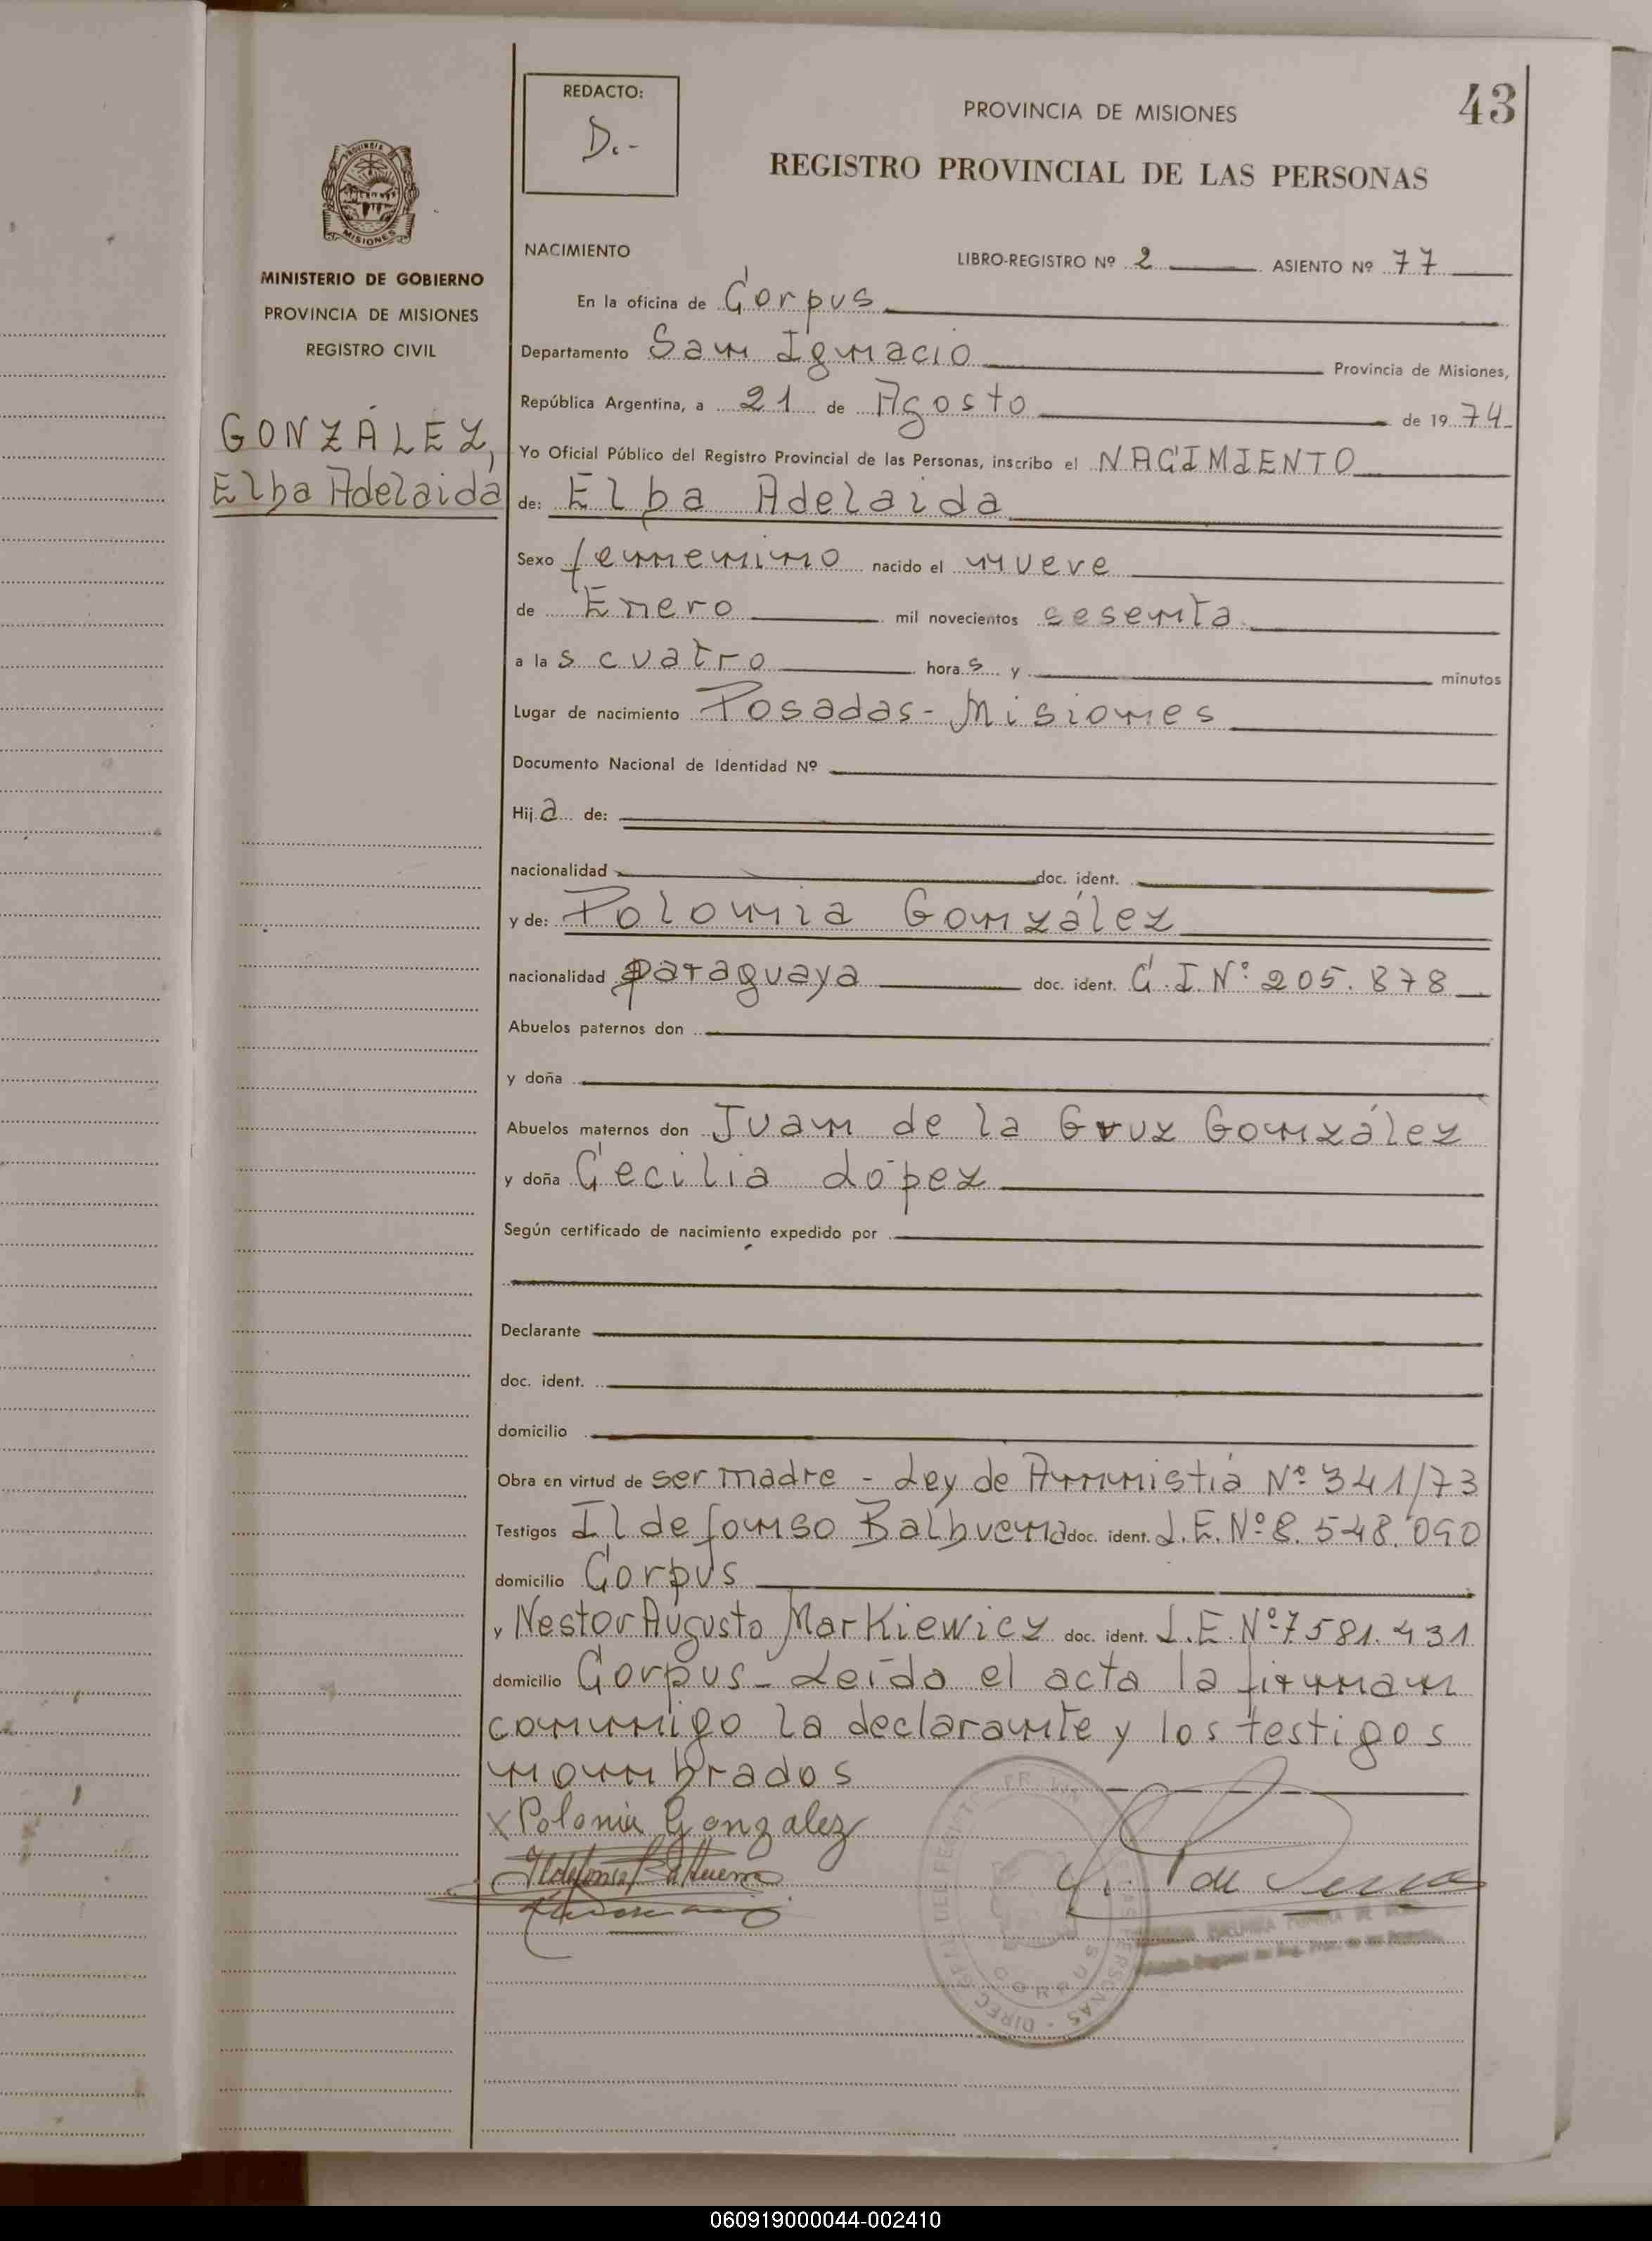 REDACTO:
D.-
PROVINCIA DE MISIONES
43
REGISTRO PROVINCIAL DE LAS PERSONAS
PROVINCIA
MISIONES
MINISTERIO DE GOBIERNO
PROVINCIA DE MISIONES
REGISTRO CIVIL
GONZÁLEZ,
Elba Adelaida
NACIMIENTO
LIBRO-REGISTRO Nº 2 ASIENTO Nº 77
En la oficina de Corpus
Departamento San Ignacio Provincia de Misiones,
República Argentina, a 21 de Agosto de 1974
Yo Oficial Público del Registro Provincial de las Personas, inscribo el NACIMIENTO
de: Elba Adelaida
Sexo femenino nacido el nueve
de Enero mil novecientos sesenta
a las cuatro horas y minutos
Lugar de nacimiento Posadas - Misiones
Documento Nacional de Identidad Nº
Hija de:
nacionalidad doc. ident.
y de: Polonia González
nacionalidad paraguaya doc. ident. C.I. Nº 205.878
Abuelos paternos don
y doña
Abuelos maternos don Juan de la Cruz González
y doña Cecilia López
Según certificado de nacimiento expedido por
Declarante
doc. ident.
domicilio
Obra en virtud de ser madre - Ley de Amnistia Nº 341/73
Testigos Ildefonso Balbuena doc. ident. L.E. Nº 8.548.090
domicilio Corpus
y Nestor Augusto Markiewicz doc. ident. L.E. Nº 7581.431
domicilio Corpus - Leído el acta la firman
conmigo la declarante y los testigos
nombrados
x Polonia Gonzalez
Ildefonso Balbuena
CORPUS
060919000044-002410